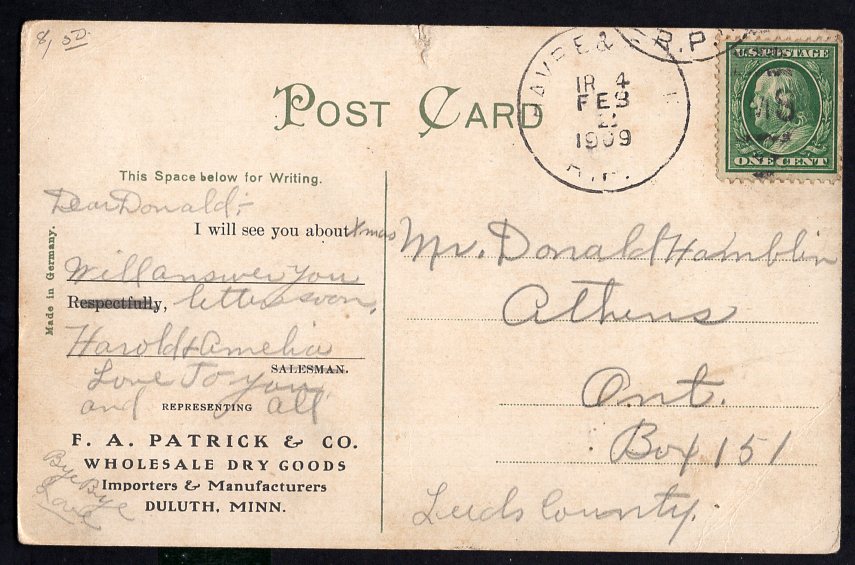 8,50
POST CARD
HAVRE &
R.P.
TR 4
FEB
1909
R.P.
U.S. POSTAGE
ONE CENT
This Space below for Writing.
Made in Germany.
Dear Donald;-
I will see you about Xmas
Will answer you
Respectfully, letter soon,
Harold & Amelia
SALESMAN.
Love To you
and REPRESENTING all
F. A. PATRICK & CO.
WHOLESALE DRY GOODS
Importers & Manufacturers
DULUTH, MINN.
Bye Bye
Love
Mr. Donald Hamblin
Athens
Ont.
Box 151
Leeds County.